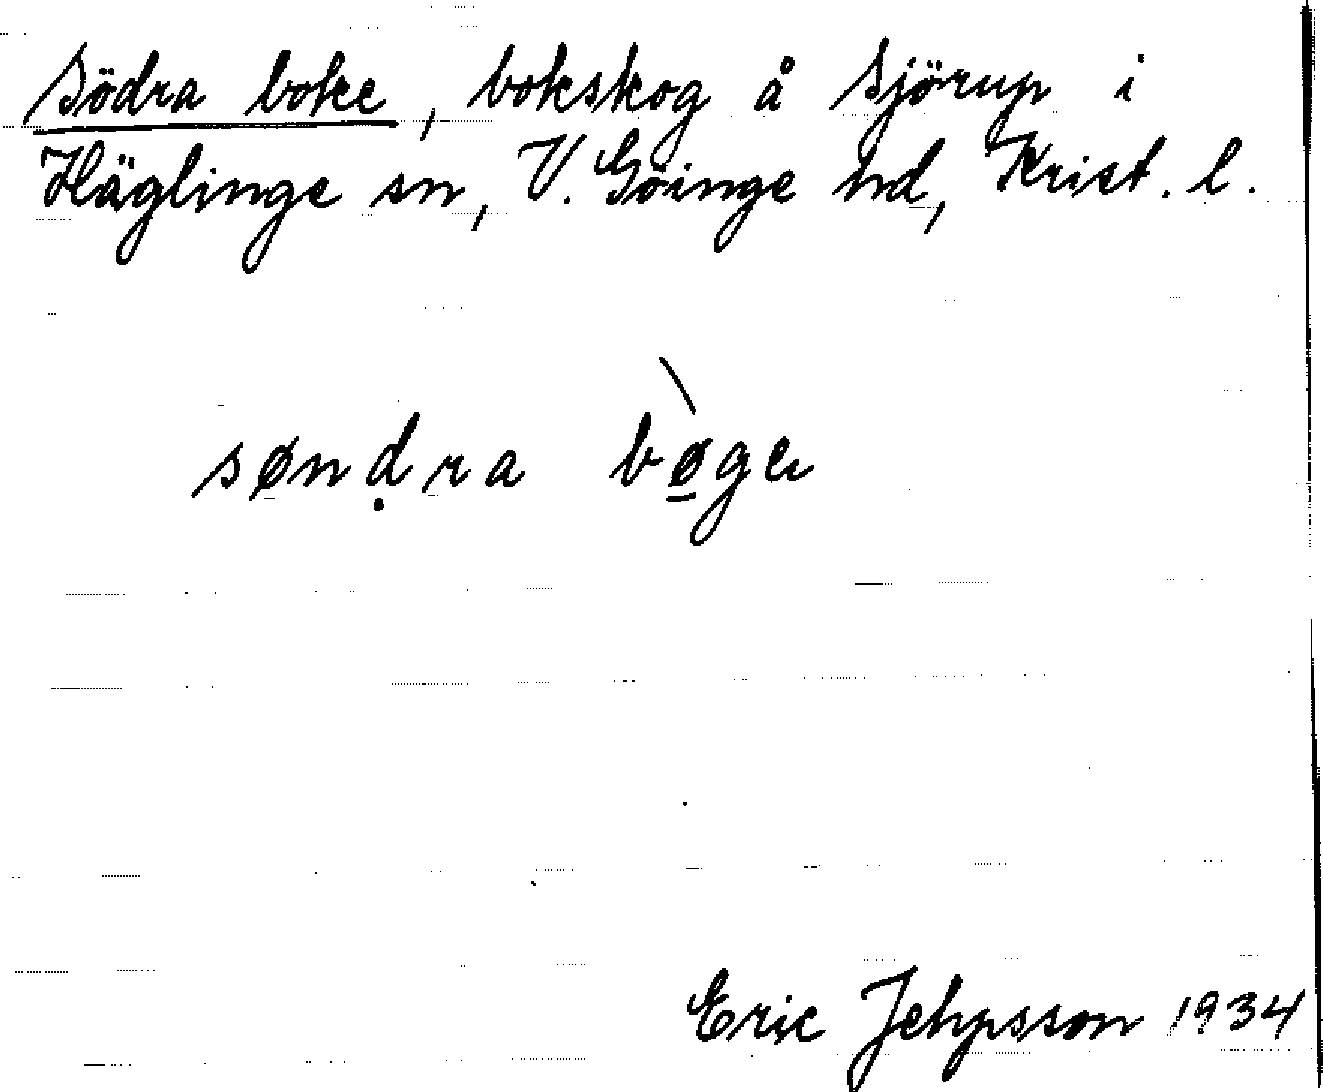 Södra boke, bokskog å Sjörup i
Häglinge sn, V. Göinge hd, Krist. l.
sønḍra bø̱̀ge
Eric Jehpsson 1934